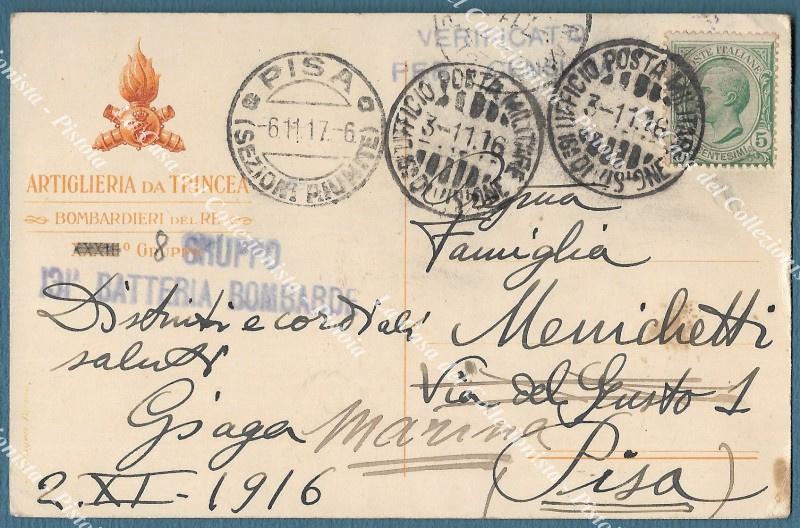 ARTIGLIERIA DA TRINCEA
BOMBARDIERI DEL RE
XXXIIIº GRUPPO
8 GRUPPO
BATTERIA BOMBARDE
Distinti e cordiali
saluti
Giaga
2.XI-1916
PISA
(SEZIONI RIUNITE)
-6.11.17-6
VERIFICATO
UFFICIO POSTA MILITARE
3-11.16
DIVISIONE
UFFICIO POSTA MILITARE
3-11.16
DIVISIONE
POSTE ITALIANE
CENTESIMI 5
Famiglia
Menichetti
Via del Giusto 1
Marina
Pisa
La Casa del Collezionista - Pistoia